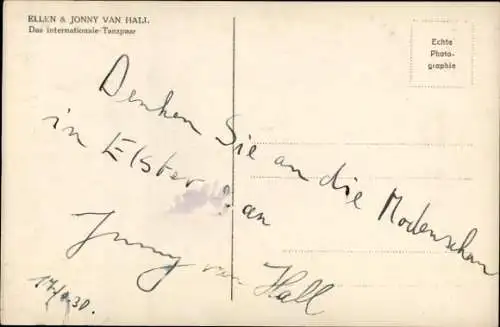 ELLEN & JONNY VAN HALL
Das internationale Tanzpaar
Echte
Photo-
graphie
Denken Sie an die Modenschau
in Elster
an
Jonny van Hall